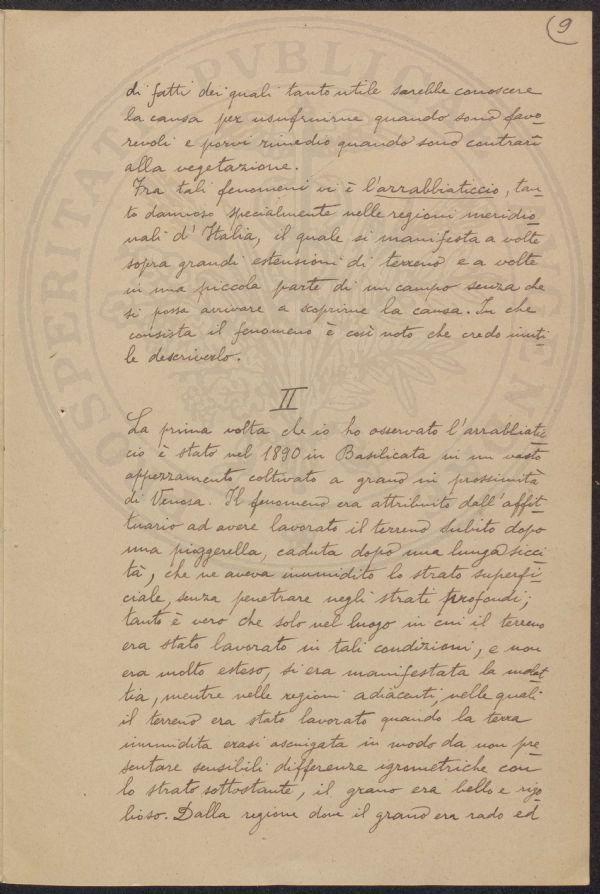 9
di fatti dei quali tanto utile sarebbe conoscere
la causa per usufruirne quando sono favo
revoli e porvi rimedio quando sono contrari
alla vegetazione.
Fra tali fenomeni vi è l'arrabbiaticcio, tan
to dannoso specialmente nelle regioni meridio
nali d'Italia, il quale si manifesta a volte
sopra grandi estensioni di terreno e a volte
in una piccola parte di un campo senza che
si possa arrivare a scoprirne la causa. In che
consista il fenomeno è così noto che credo inuti
le descriverlo.
II
La prima volta che io ho osservato l'arrabbiatic
cio è stato nel 1890 in Basilicata in un vasto
appezzamento coltivato a grano in prossimità
di Venosa. Il fenomeno era attribuito dall'affit
tuario ad avere lavorato il terreno subito dopo
una pioggerella, caduta dopo una lunga sicci
tà, che ne aveva inumidito lo strato superfi
ciale, senza penetrare negli strati profondi;
tanto è vero che solo nel luogo in cui il terreno
era stato lavorato in tali condizioni, e non
era molto esteso, si era manifestata la malat
tia, mentre nelle regioni adiacenti, nelle quali
il terreno era stato lavorato quando la terra
inumidita erasi asciugata in modo da non pre
sentare sensibili differenze igrometriche con
lo strato sottostante, il grano era bello e rigo
glioso. Dalla regione dove il grano era rado ed